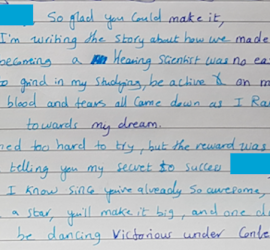 So glad you could make it,
I'm writing the story about how we made
becoming a Hearing Scientist was no ea
to grind in my studying, be active & on m
blood and tears all came down as I Ran
towards my dream.
ned too hard to try, but the reward was
telling you my secret to success
I know since you're already so awesome,
a star, you'll make it big, and one da
be dancing victorious under Confe